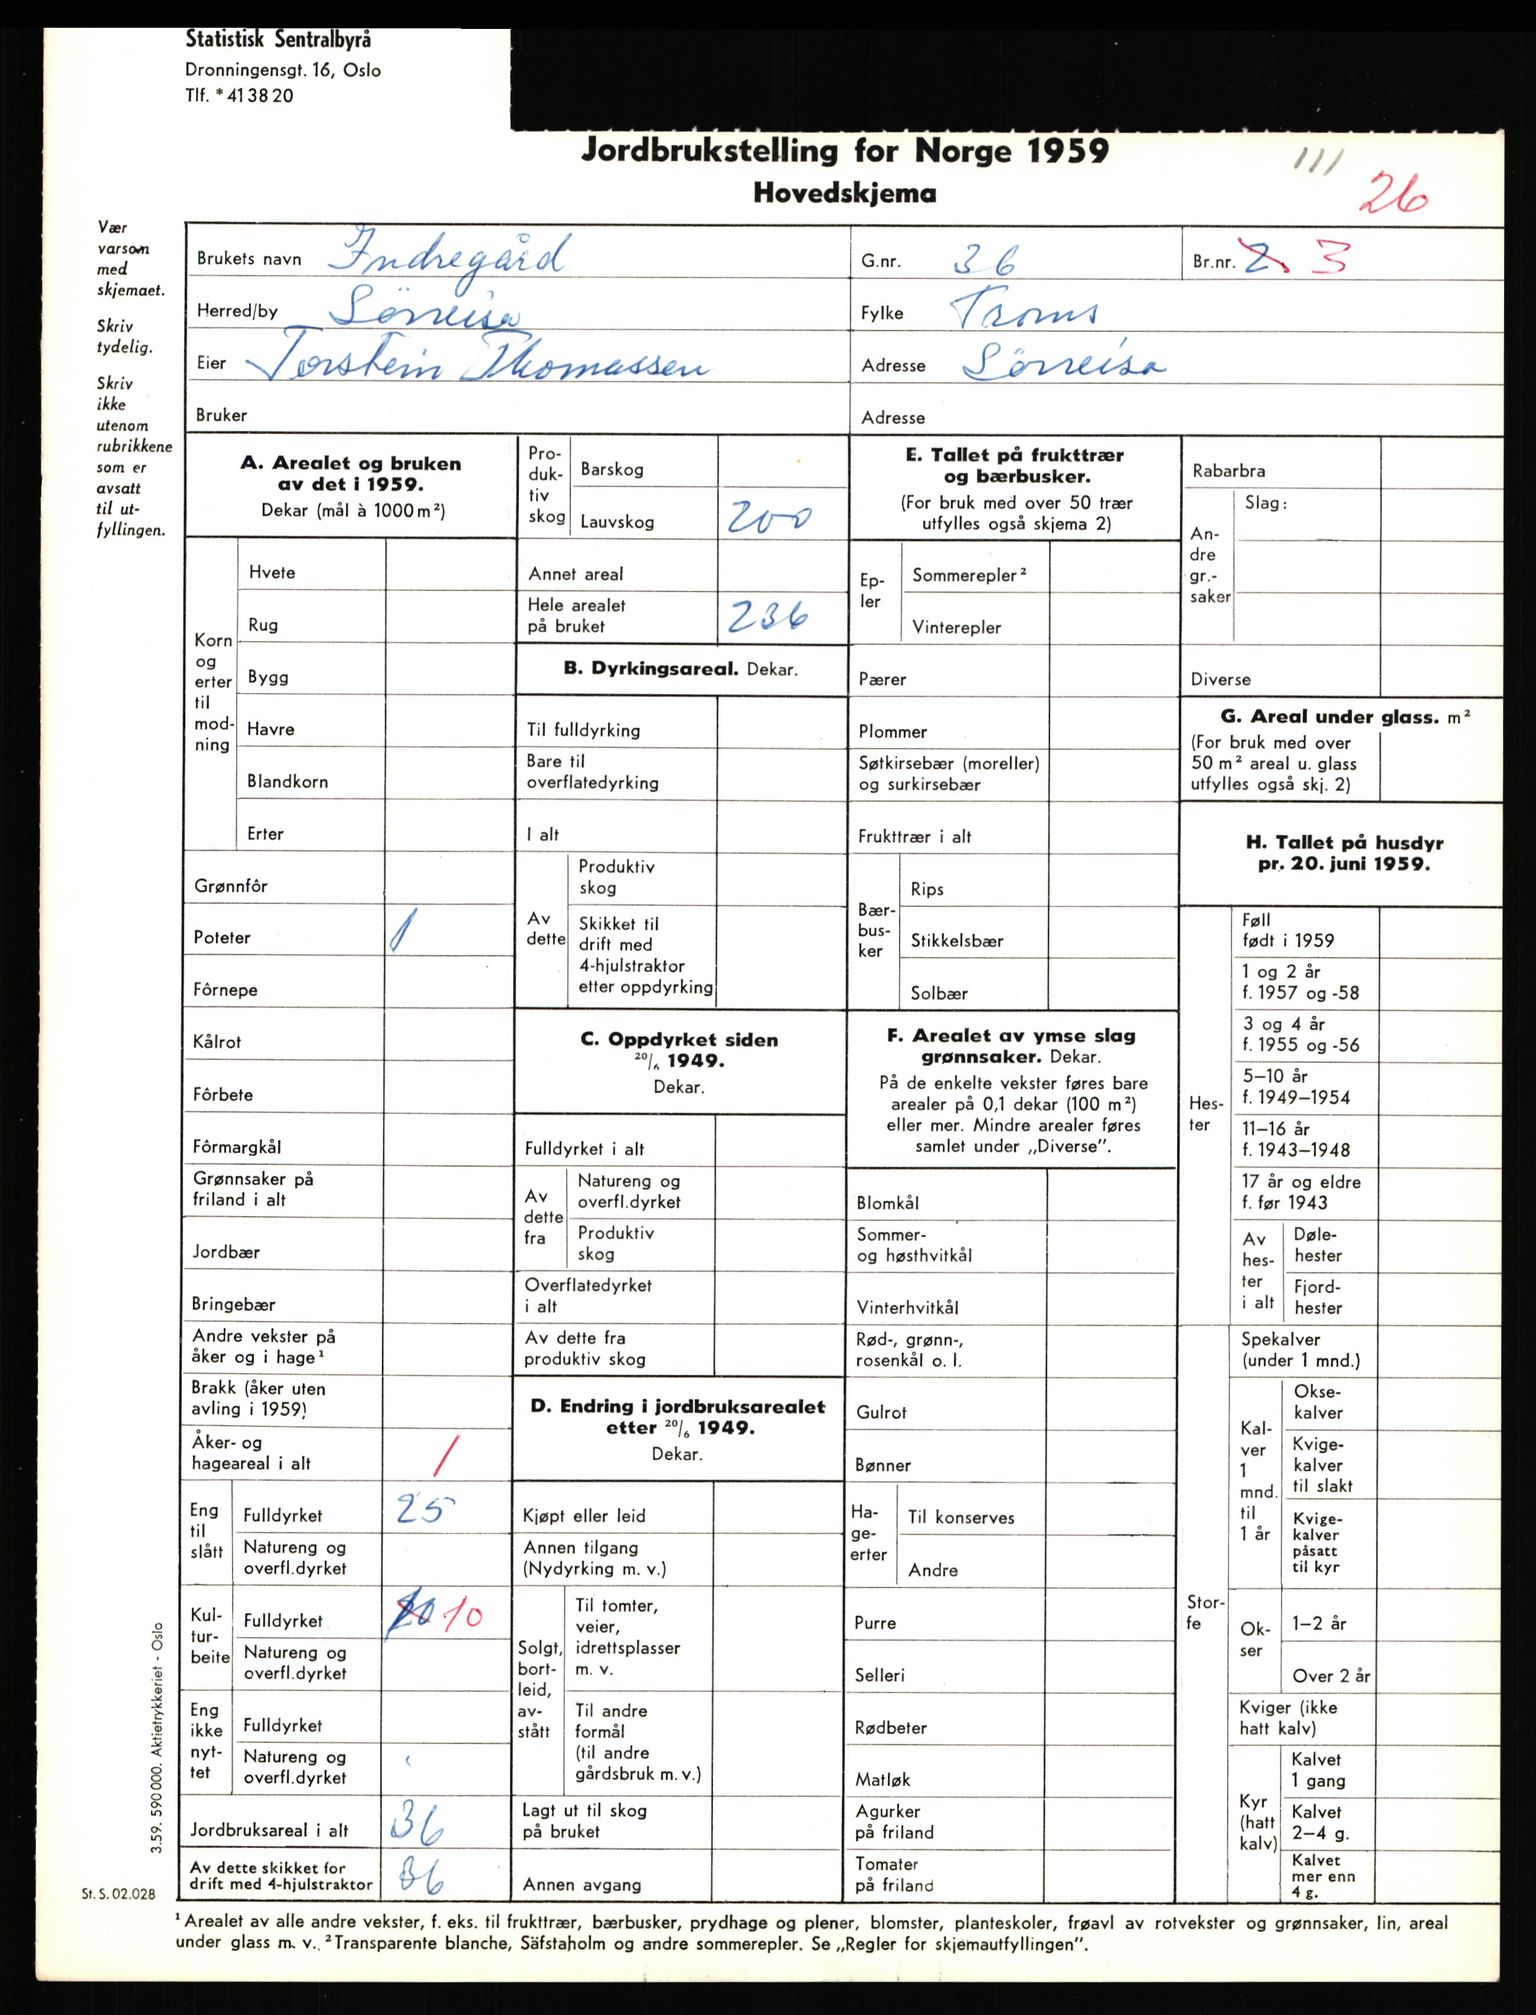 Statistisk Sentralbyrå
Dronningensgt. 16, Oslo
Tlf. * 41 38 20
Jordbrukstelling for Norge 1959
Hovedskjema
111
26
Vær
varsom
med
skjemaet.
Skriv
tydelig.
Skriv
ikke
utenom
rubrikkene
som er
avsatt
til ut-
fyllingen.
Brukets navn Indregård
G.nr. 36
Br.nr. 2 3
Herred/by Sörreisa
Fylke Troms
Eier Torstein Thomassen
Adresse Sörreisa
Bruker
Adresse
A. Arealet og bruken
av det i 1959.
Dekar (mål à 1000 m²)
Korn
og
erter
til
mod-
ning
Hvete
Rug
Bygg
Havre
Blandkorn
Erter
Grønnfôr
Poteter 1
Fôrnepe
Kålrot
Fôrbete
Fôrmargkål
Grønnsaker på
friland i alt
Jordbær
Bringebær
Andre vekster på
åker og i hage¹
Brakk (åker uten
avling i 1959)
Åker- og
hageareal i alt 1
Eng
til
slått
Fulldyrket 25
Natureng og
overfl.dyrket
Kul-
tur-
beite
Fulldyrket 10
Natureng og
overfl.dyrket
Eng
ikke
nyt-
tet
Fulldyrket
Natureng og
overfl.dyrket
Jordbruksareal i alt 36
Av dette skikket for
drift med 4-hjulstraktor 36
Pro-
duk-
tiv
skog
Barskog
Lauvskog 200
Annet areal
Hele arealet
på bruket 236
B. Dyrkingsareal. Dekar.
Til fulldyrking
Bare til
overflatedyrking
I alt
Av
dette
Produktiv
skog
Skikket til
drift med
4-hjulstraktor
etter oppdyrking
C. Oppdyrket siden
20/6 1949.
Dekar.
Fulldyrket i alt
Av
dette
fra
Natureng og
overfl.dyrket
Produktiv
skog
Overflatedyrket
i alt
Av dette fra
produktiv skog
D. Endring i jordbruksarealet
etter 20/6 1949.
Dekar.
Kjøpt eller leid
Annen tilgang
(Nydyrking m. v.)
Solgt,
bort-
leid,
av-
stått
Til tomter,
veier,
idrettsplasser
m. v.
Til andre
formål
(til andre
gårdsbruk m. v.)
Lagt ut til skog
på bruket
Annen avgang
E. Tallet på frukttrær
og bærbusker.
(For bruk med over 50 trær
utfylles også skjema 2)
Ep-
ler
Sommerepler²
Vinterepler
Pærer
Plommer
Søtkirsebær (moreller)
og surkirsebær
Frukttrær i alt
Bær-
bus-
ker
Rips
Stikkelsbær
Solbær
F. Arealet av ymse slag
grønnsaker. Dekar.
På de enkelte vekster føres bare
arealer på 0,1 dekar (100 m²)
eller mer. Mindre arealer føres
samlet under „Diverse”.
Blomkål
Sommer-
og høsthvitkål
Vinterhvitkål
Rød-, grønn-,
rosenkål o. l.
Gulrot
Bønner
Ha-
ge-
erter
Til konserves
Andre
Purre
Selleri
Rødbeter
Matløk
Agurker
på friland
Tomater
på friland
Rabarbra
An-
dre
gr.-
saker
Slag:
Diverse
G. Areal under glass. m²
(For bruk med over
50 m² areal u. glass
utfylles også skj. 2)
H. Tallet på husdyr
pr. 20. juni 1959.
Hes-
ter
Føll
født i 1959
1 og 2 år
f. 1957 og -58
3 og 4 år
f. 1955 og -56
5–10 år
f. 1949–1954
11–16 år
f. 1943–1948
17 år og eldre
f. før 1943
Av
hes-
ter
i alt
Døle-
hester
Fjord-
hester
Stor-
fe
Spekalver
(under 1 mnd.)
Kal-
ver
1
mnd.
til
1 år
Okse-
kalver
Kvige-
kalver
til slakt
Kvige-
kalver
påsatt
til kyr
Ok-
ser
1–2 år
Over 2 år
Kviger (ikke
hatt kalv)
Kyr
(hatt
kalv)
Kalvet
1 gang
Kalvet
2–4 g.
Kalvet
mer enn
4 g.
3.59. 590 000. Aktietrykkeriet - Oslo
St. S. 02.028
¹ Arealet av alle andre vekster, f. eks. til frukttrær, bærbusker, prydhage og plener, blomster, planteskoler, frøavl av rotvekster og grønnsaker, lin, areal
under glass m. v. ² Transparente blanche, Säfstaholm og andre sommerepler. Se „Regler for skjemautfyllingen”.